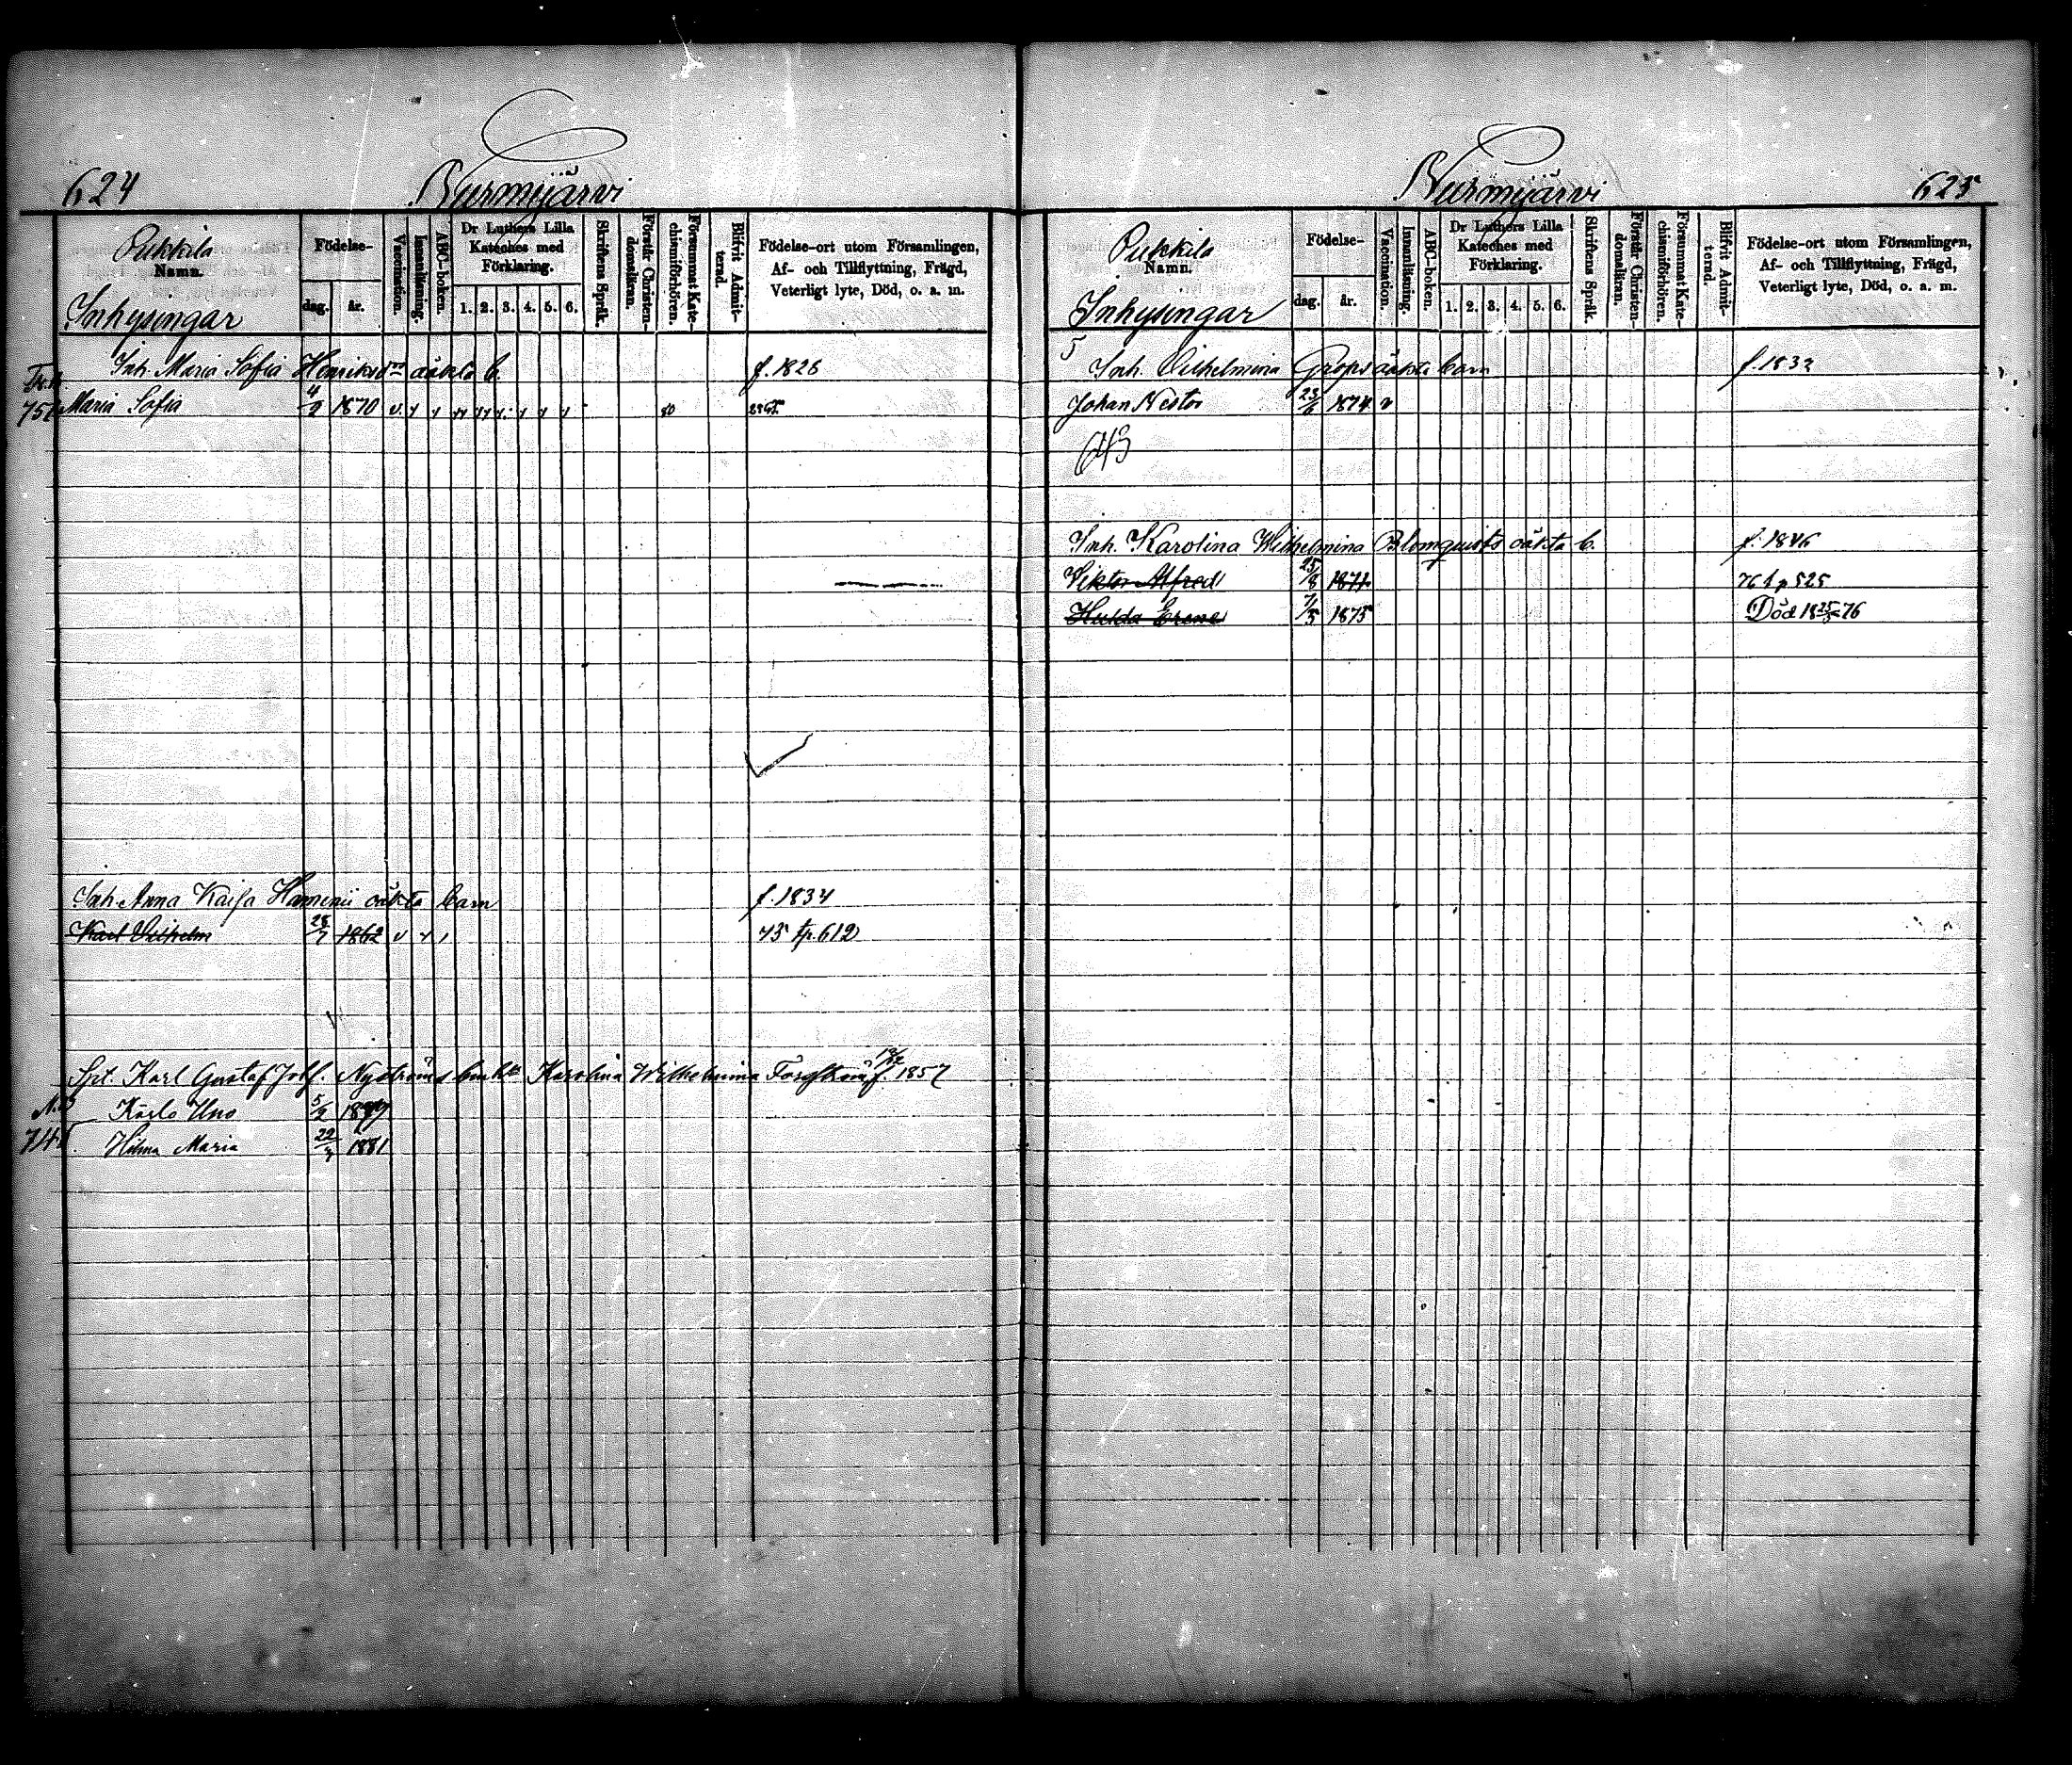 624
Nurmijärvi
Pukkila
Namn.
Inhysingar
Födelse-
dag.
år.
Vaccination.
Innanläsning.
ABC-boken.
Dr Luthers Lilla
Kateches med
Förklaring.
1. 2. 3. 4. 5. 6.
Skriftens Språk.
Förstår Christen-
domslkran.
Försummat Kate-
chismiförhören.
Blifvit Admit-
terad.
Födelse-ort utom Församlingen,
Af- och Tillflyttning, Frägd,
Veterligt lyte, Död, o. a. m.
Inh. Maria Sofia Henriksd oäkta b. f. 1826
751 Maria Sofia 4/2 1870 v. 80
Inh. Anna Kaisa oäkta barn f. 1834
Karl Vilhelm 28/7 1862 v 612
Karl Gustaf Nyströms Karolina Wilhelmina f. 1857
Karlo Uno 5/2
Hilma Maria 22 1881
Nurmijärvi
625
Pukkila
Namn.
Inhysingar
Födelse-
dag.
år.
Vaccination.
Innanläsning.
ABC-boken.
Dr Luthers Lilla
Kateches med
Förklaring.
1. 2. 3. 4. 5. 6.
Skriftens Språk.
Förstår Christen-
domslkran.
Försummat Kate-
chismiförhören.
Blifvit Admit-
terad.
Födelse-ort utom Församlingen,
Af- och Tillflyttning, Frägd,
Veterligt lyte, Död, o. a. m.
5
Inh. Vilhelmina Grops oäkta barn f. 1832
Johan Nestor 23/6 1874 v
643
Inh. Karolina Wilhelmina Blomquists oäkta b. f. 1846
Viktor Alfred 25/8 1871 76 t p 525
Hulda Erene 7/5 1875 Död 18 25/3 76